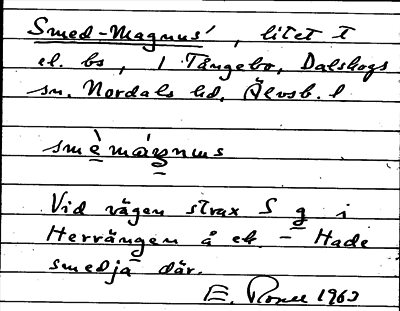 Smed-Magnus', litet T
el. bs, i Tångebo, Dalskogs
sn. Nordals hd. Älvsb. l
smè máɣnus
Vid vägen strax S g i
Herrängen å ek - Hade
smedja där.
E. 1963